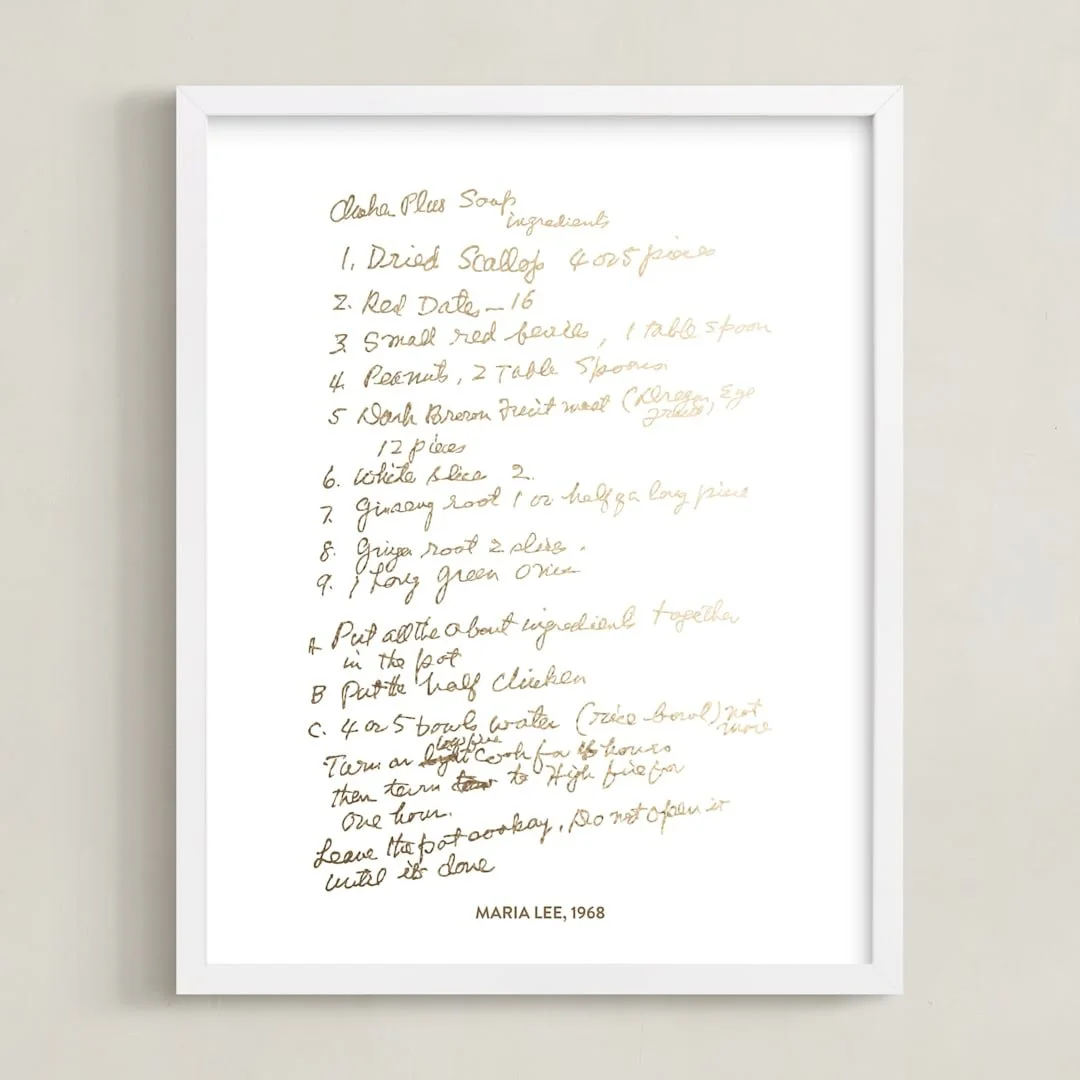 Plus Soup
ingredients
1. Dried Scallop 4 or 5 pieces
2. Red Dates – 16
3. Small red berries, 1 table spoon
4. Peanuts, 2 Table Spoons
5 Dark Brown Fruit meat (Dragon Eye
12 pieces
6. White slice 2.
7. Ginseng root 1 or half of a long piece
8. Ginger root 2 slices.
9. 1 Long green
A Put all the about ingredients together
in the pot
B Put the half Chicken
C. 4 or 5 bowls water (rice bowl) not
more
low fire
Turn on Cook for hours
then turn to High fire for
One hour.
Leave the pot, Do not open it
until it's done
MARIA LEE, 1968